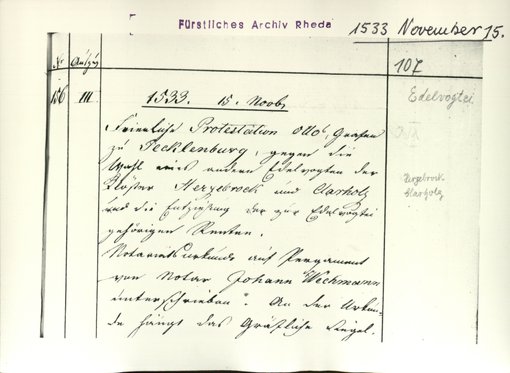 Fürstliches Archiv Rheda
1533 November 15.
Nr
107
156 III
1533. 15. Novbr
Edelvogtei
Feierliche Protestation Otto's, Grafen
zu Tecklenburg, gegen die
Wahl eines andern Edelvogten der
Klöster Herzebrock und Clarholz
und die Entziehung der zur Edelvogtei
gehörigen Renten.
Herzebrock
Clarholz
Notariatsurkunde auf Pergament
von Notar Johann Wechmann
unterschrieben". An der Urkun-
de hängt das Gräfliche Siegel.